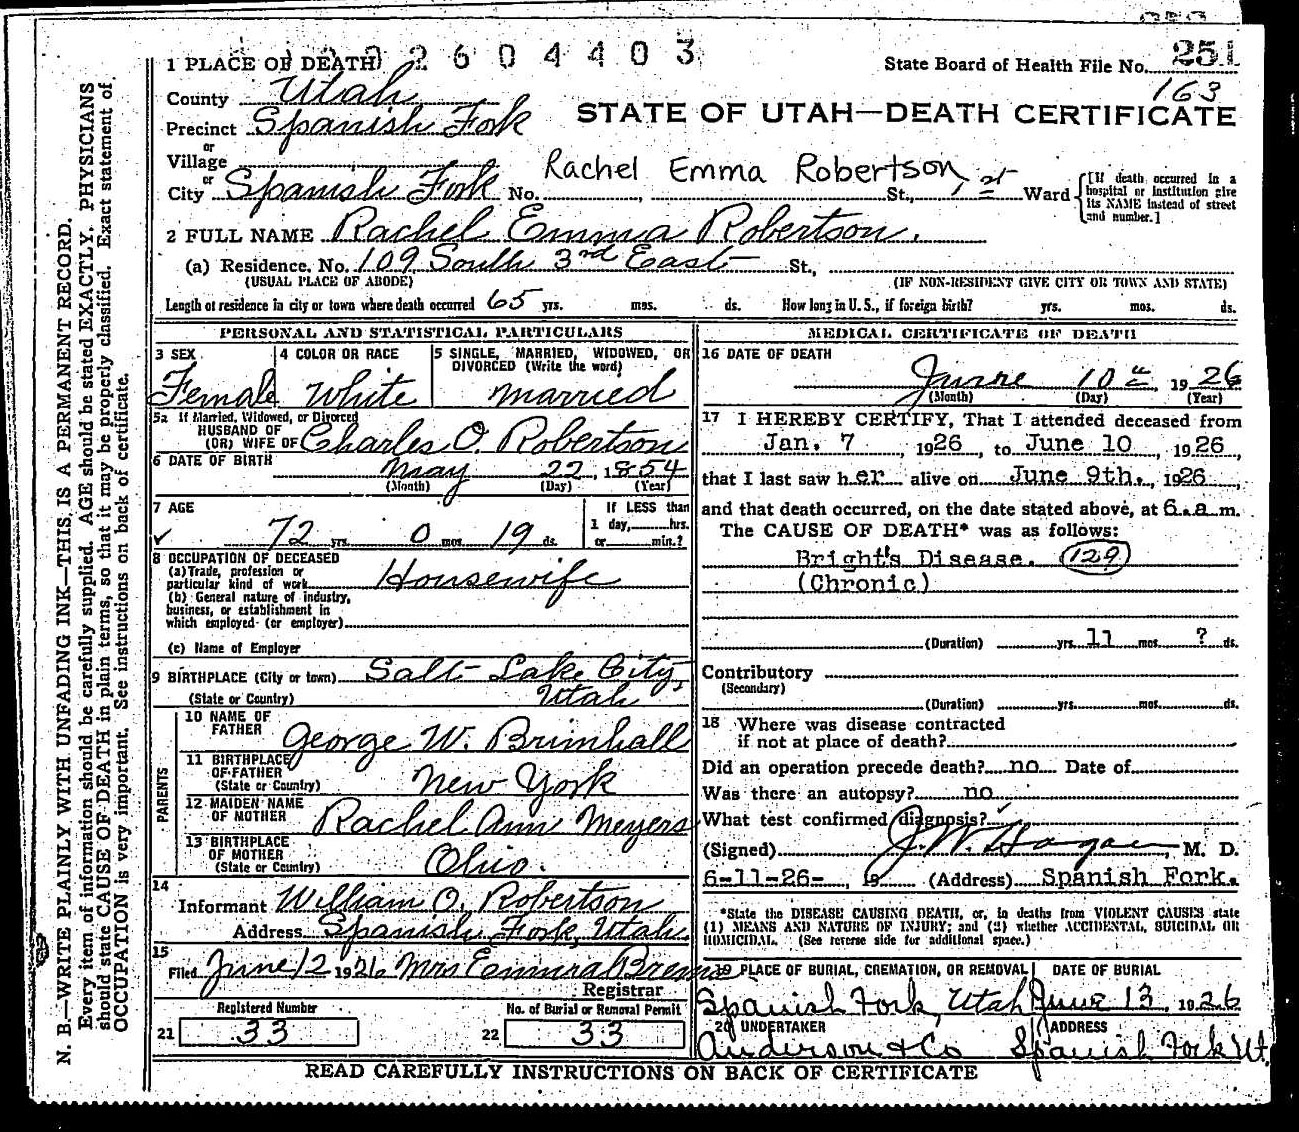 2604403
1 PLACE OF DEATH
State Board of Health File No. 251
163
County Utah
STATE OF UTAH—DEATH CERTIFICATE
Precinct Spanish Fork
or
Village
Rachel Emma Robertson
or
City Spanish Fork No. , St., 1st Ward
[If death occurred in a hospital or institution give its NAME instead of street and number.]
2 FULL NAME Rachel Emma Robertson.
(a) Residence. No. 109 South 3rd East St.,
(USUAL PLACE OF ABODE) (IF NON-RESIDENT GIVE CITY OR TOWN AND STATE)
Length of residence in city or town where death occurred 65 yrs. mos. ds. How long in U. S., if foreign birth? yrs. mos. ds.
PERSONAL AND STATISTICAL PARTICULARS
3 SEX
Female
4 COLOR OR RACE
White
5 SINGLE, MARRIED, WIDOWED, OR
DIVORCED (Write the word)
Married
5a If Married, Widowed, or Divorced
HUSBAND OF
(OR) WIFE OF Charles O. Robertson
6 DATE OF BIRTH May 22, 1854
(Month) (Day) (Year)
7 AGE
72 yrs. 0 mos. 19 ds.
If LESS than
1 day, hrs.
or min.?
8 OCCUPATION OF DECEASED
(a) Trade, profession or
particular kind of work Housewife
(b) General nature of industry,
business, or establishment in
which employed (or employer)
(c) Name of Employer
9 BIRTHPLACE (City or town) Salt Lake City,
(State or Country) Utah
PARENTS
10 NAME OF
FATHER George W. Brimhall
11 BIRTHPLACE
OF FATHER
(State or Country) New York
12 MAIDEN NAME
OF MOTHER Rachel Ann Meyers
13 BIRTHPLACE
OF MOTHER
(State or Country) Ohio.
14
Informant William O. Robertson
Address Spanish Fork, Utah
15
Filed June 12 1926 Mrs Emma
Registrar
Registered Number
21 33
No. of Burial or Removal Permit
22 33
MEDICAL CERTIFICATE OF DEATH
16 DATE OF DEATH
June 10th, 1926
(Month) (Day) (Year)
17 I HEREBY CERTIFY, That I attended deceased from
Jan. 7, 1926, to June 10, 1926,
that I last saw her alive on June 9th., 1926,
and that death occurred, on the date stated above, at 6.a m.
The CAUSE OF DEATH* was as follows:
Bright's Disease. 129
(Chronic)
(Duration) yrs. 11 mos. ? ds.
Contributory
(Secondary)
(Duration) yrs. mos. ds.
18 Where was disease contracted
if not at place of death?
Did an operation precede death? no Date of
Was there an autopsy? no
What test confirmed diagnosis?
(Signed) J. W. Hagan, M. D.
6-11-26-, 19 (Address) Spanish Fork.
*State the DISEASE CAUSING DEATH, or, in deaths from VIOLENT CAUSES state
(1) MEANS AND NATURE OF INJURY; and (2) whether ACCIDENTAL, SUICIDAL OR
HOMICIDAL. (See reverse side for additional space.)
19 PLACE OF BURIAL, CREMATION, OR REMOVAL
Spanish Fork, Utah
DATE OF BURIAL
June 13, 1926
20 UNDERTAKER
Anderson & Co
ADDRESS
Spanish Fork Ut.
READ CAREFULLY INSTRUCTIONS ON BACK OF CERTIFICATE
N. B.—WRITE PLAINLY WITH UNFADING INK—THIS IS A PERMANENT RECORD.
Every item of information should be carefully supplied. AGE should be stated EXACTLY. PHYSICIANS
should state CAUSE OF DEATH in plain terms, so that it may be properly classified. Exact statement of
OCCUPATION is very important. See instructions on back of certificate.